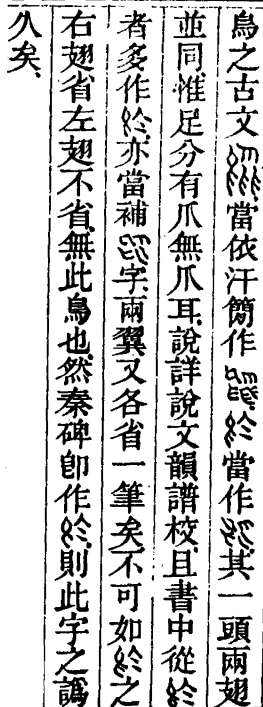 烏之古文當依汗簡作當作其一頭兩翅
並同惟足分有爪無爪耳說詳說文韻譜校且書中從
者多作亦當補字兩翼又各省一筆矣不可如之
右翅省左翅不省無此鳥也然秦碑即作則此字之譌
久矣